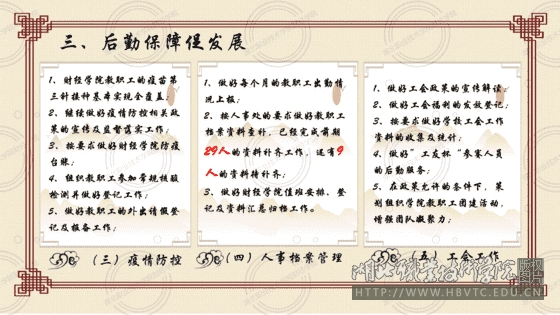 三、后勤保障促发展
1、财经学院教职工的疫苗第
三针接种基本实现全覆盖；
2、继续做好疫情防控相关政
策的宣传及监督落实工作；
3、按要求做好财经学院防疫
台账；
4、组织教职工参加常规核酸
检测并做好登记工作；
5、做好教职工的外出请假登
记及报备工作；
（三）疫情防控
1、做好每个月的教职工出勤情
况上报；
2、按人事处的要求做好教职工
档案资料查补，已经完成前期
29人的资料补齐工作，还有9
人的资料待补齐；
3、做好财经学院值班安排、登
记及资料汇总归档工作。
（四）人事档案管理
1、做好工会政策的宣传解读；
2、做好工会福利的发放登记；
3、按要求做好学校工会工作
资料的收集及统计；
4、做好"工友杯"参赛人员
的后勤服务；
5、在政策允许的条件下，策
划组织学院教职工团建活动，
增强团队凝聚力；
（五）工会工作
HTTP://WWW.HBVTC.EDU.CN